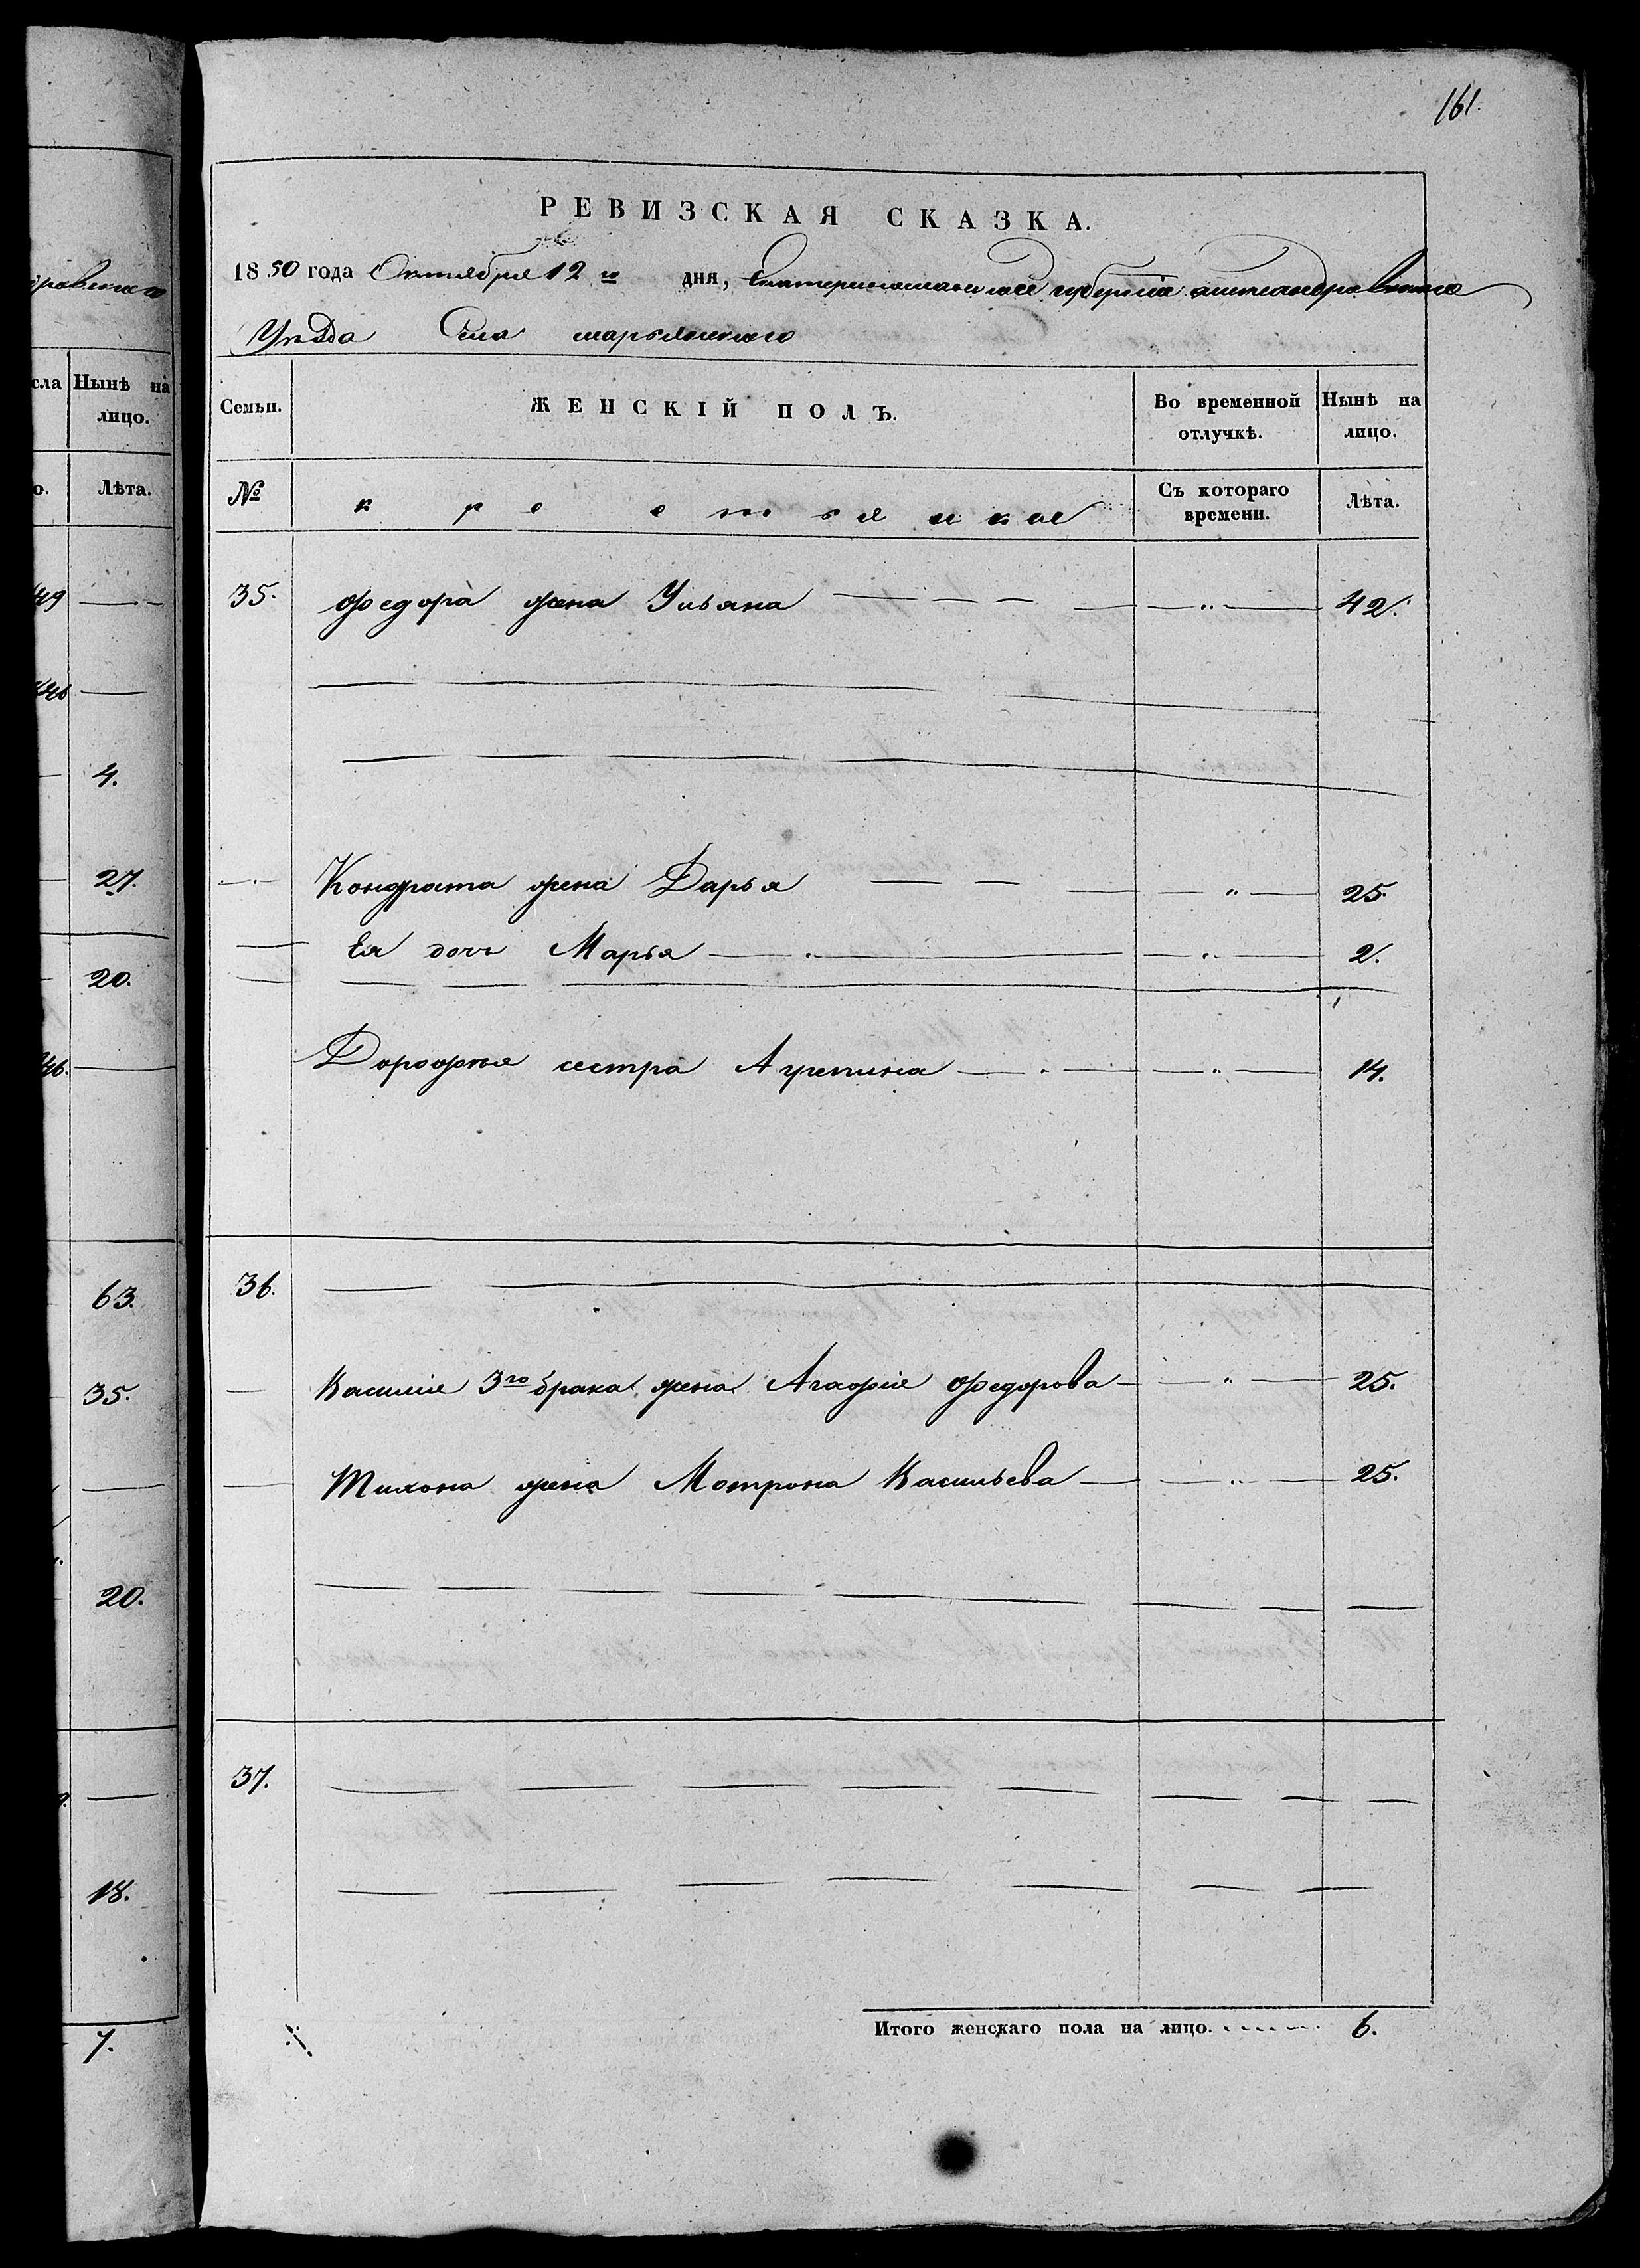 161.
РЕВИЗСКАЯ СКАЗКА.
1850 года Октября 12го дня, Екатеринославской губерніи александровскаго
Уѣзда Села марьянскаго
Семьи. ЖЕНСКІЙ ПОЛЪ. Во временной отлучкѣ. Нынѣ на лицо.
№ крестьянкие Съ котораго времени. Лѣта.
35. Федора жена Ульяна — „ — 42.
Кондрата жена Дарья — „ — 25.
Ея дочь Марья — „ — 2.
Дорофея сестра Агрепина — „ — 14.
36.
Василія 3го брака жена Агафія Федорова — „ — 25.
Тихона жена Мотрона Васильева — „ — 25.
37.
Итого женскаго пола на лицо. 6.
сла Нынѣ на лицо.
о. Лѣта.
4.
27.
20.
63.
35.
20.
18.
7.